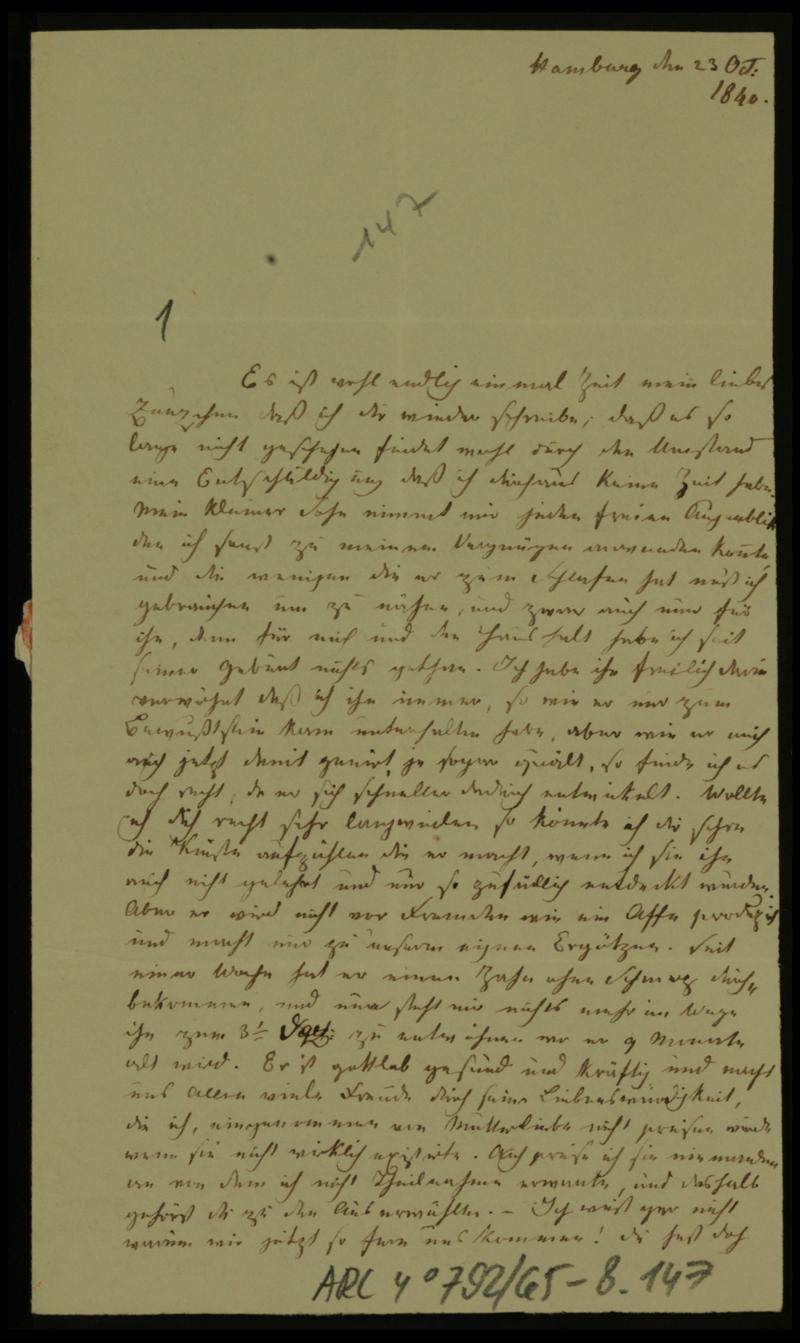 Hamburg den 23 Oct:
1840.
147
1
Es ist wohl endlich einmal Zeit mein liebes
daß ich dir wieder schreibe, daß es so
lange nicht geschehen findet wohl durch den Umstand
eine Entschuldigung daß ich durchaus keine Zeit habe.
Mein kleiner Sohn nimmt mir jeden freien Augenblik
den ich sonst zu meinem Vergnügen anwenden konte,
und die wenigen die er zum Schlafen hat muß ich
gebrauchen um zu nähen, und zwar auch nur für
ihn, denn für mich und den Haushalt habe ich seit
seiner Geburt nichts gethan. Ich habe ihn freilich darin
verwöhnt daß ich ihn immer, so wie er nur zum
Bewußtsein kam unterhalten habe, aber wie er mich
auch jetzt damit genirt, ja sogar quält, so finde ich es
doch recht, da er sich schneller dadurch entwickelt. Wollte
ich dich recht sehr langweilen so könnte ich dir schon
die Künste aufzählen die er macht, wenn ich sie ihn
auch nicht gelehrt und nur so zufällig entdeckt wurden.
Aber er wird nicht vor Fremden wie ein Affe produzirt
und macht nur zu unserm eignen Ergötzen. Seit
einer Woche hat er einen Zahn ohne Schmerz durch-
bekommen, und nun steht mir nichts mehr im Wege
ihn zum 3t zu entwöhnen wo er 9 Monate
alt wird. Er ist gottlob gesund und kräftig und macht
uns allen viele Freude durch seine Liebenswürdigkeit,
die ich, eingenommen von Mutterliebe nicht preisen würde
wenn sie nicht wirklich existirte. Auch preise ich sie niemandem
an von dem ich nicht Theilnahme erwarte, und deshalb
gehörst du zu den Auserwählten. – Ich weiß gar nicht
warum wir jetzt so fern uns kommen! du hast doch
ARC 4° 792/G5-8. 147